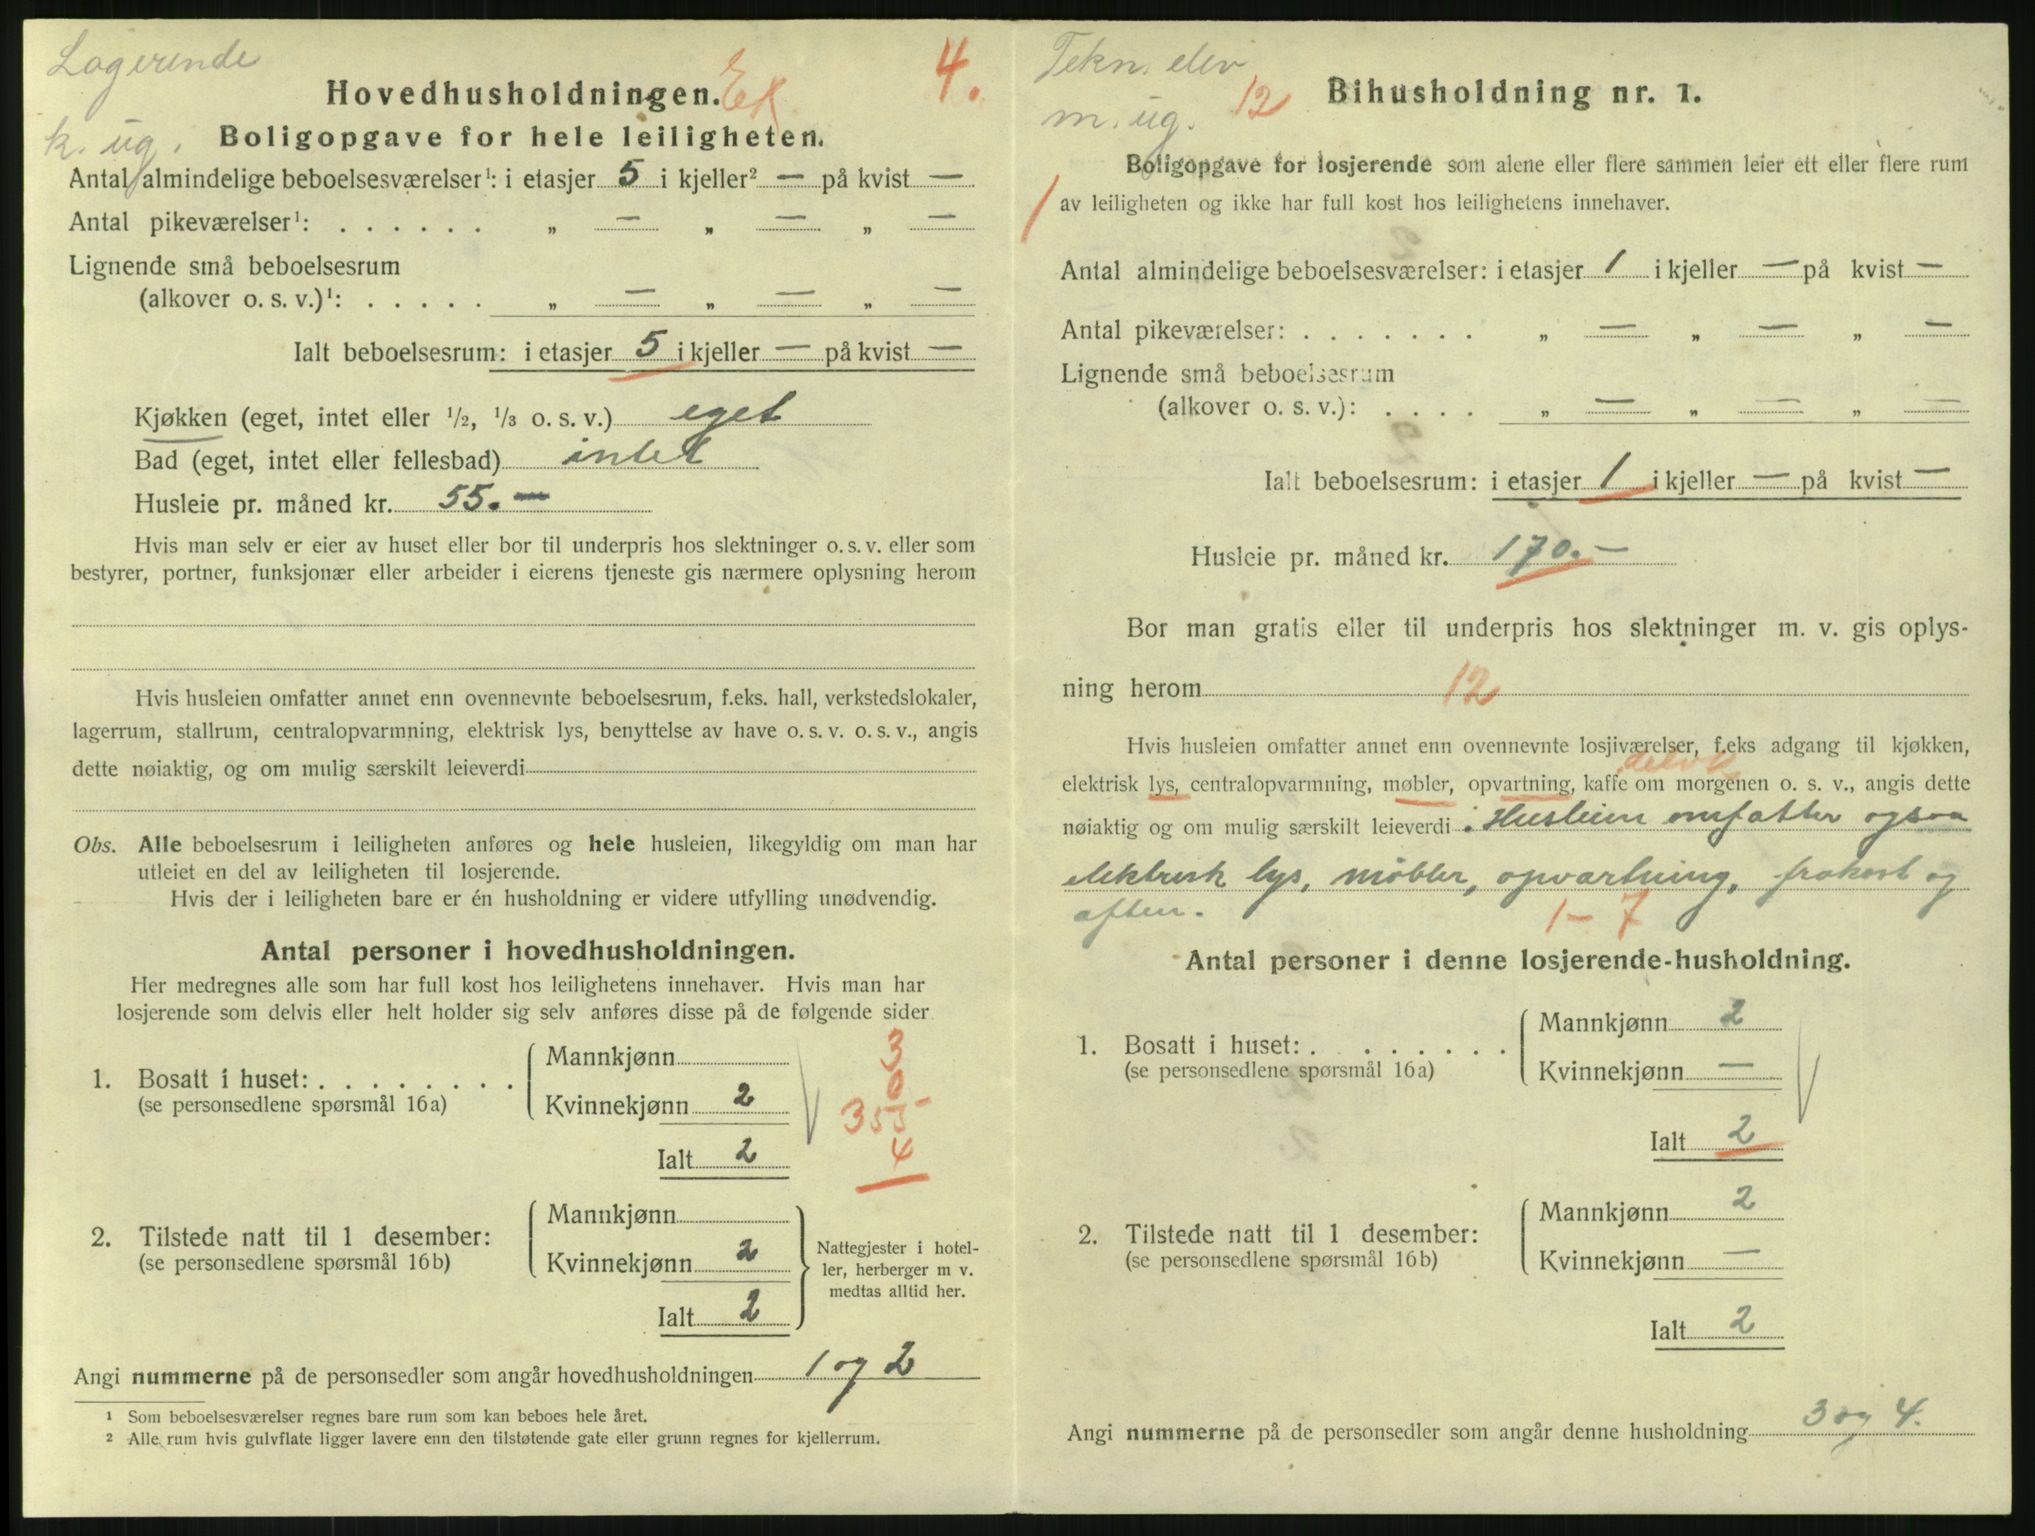 Logerende
k. ug.
Hovedhusholdningen.
4.
Boligopgave for hele leiligheten.
Antal almindelige beboelsesværelser¹: i etasjer 5 i kjeller² — på kvist —
Antal pikeværelser¹: . . . . . . „ — „ — „ —
Lignende små beboelsesrum
(alkover o. s. v.)¹: . . . . . „ — „ — „ —
Ialt beboelsesrum: i etasjer 5 i kjeller — på kvist —
Kjøkken (eget, intet eller ½, ⅓ o. s. v.) eget
Bad (eget, intet eller fellesbad) intet
Husleie pr. måned kr. 55.—
Hvis man selv er eier av huset eller bor til underpris hos slektninger o. s. v. eller som
bestyrer, portner, funksjonær eller arbeider i eierens tjeneste gis nærmere oplysning herom
Hvis husleien omfatter annet enn ovennevnte beboelsesrum, f.eks. hall, verkstedslokaler,
lagerrum, stallrum, centralopvarmning, elektrisk lys, benyttelse av have o. s. v. o. s. v., angis
dette nøiaktig, og om mulig særskilt leieverdi
Obs. Alle beboelsesrum i leiligheten anføres og hele husleien, likegyldig om man har
utleiet en del av leiligheten til losjerende.
Hvis der i leiligheten bare er én husholdning er videre utfylling unødvendig.
Antal personer i hovedhusholdningen.
Her medregnes alle som har full kost hos leilighetens innehaver. Hvis man har
losjerende som delvis eller helt holder sig selv anføres disse på de følgende sider
3
0
355-
4
1. Bosatt i huset: . . . . . . . .
(se personsedlene spørsmål 16 a)
Mannkjønn
Kvinnekjønn 2
Ialt 2
2. Tilstede natt til 1 desember:
(se personsedlene spørsmål 16 b)
Mannkjønn
Kvinnekjønn 2
Ialt 2
Nattegjester i hotel-
ler, herberger m v.
medtas alltid her.
Angi nummerne på de personsedler som angår hovedhusholdningen 1 og 2
¹ Som beboelsesværelser regnes bare rum som kan beboes hele året.
² Alle rum hvis gulvflate ligger lavere enn den tilstøtende gate eller grunn regnes for kjellerrum.
Tekn. elev
m. ug. 12
Bihusholdning nr. 1.
Boligopgave for losjerende som alene eller flere sammen leier ett eller flere rum
av leiligheten og ikke har full kost hos leilighetens innehaver.
1
Antal almindelige beboelsesværelser: i etasjer 1 i kjeller — på kvist —
Antal pikeværelser: . . . . . . . „ — „ — „ —
Lignende små beboelsesrum
(alkover o. s. v.): . . . . „ — „ — „ —
Ialt beboelsesrum: i etasjer 1 i kjeller — på kvist —
Husleie pr. måned kr. 170.—
Bor man gratis eller til underpris hos slektninger m. v. gis oplys-
ning herom 12
Hvis husleien omfatter annet enn ovennevnte losjiværelser, f.eks adgang til kjøkken,
elektrisk lys, centralopvarmning, møbler, opvartning, kaffe om morgenen o. s. v., angis dette
nøiaktig og om mulig særskilt leieverdi . Husleien omfatter ogsaa
elektrisk lys, møbler, opvartning, frokost og
aften.
1 - 7
Antal personer i denne losjerende-husholdning.
1. Bosatt i huset: . . . . . . . .
(se personsedlene spørsmål 16 a)
Mannkjønn 2
Kvinnekjønn —
Ialt 2
2. Tilstede natt til 1 desember:
(se personsedlene spørsmål 16 b)
Mannkjønn 2
Kvinnekjønn —
Ialt 2
Angi nummerne på de personsedler som angår denne husholdning 3 og 4.